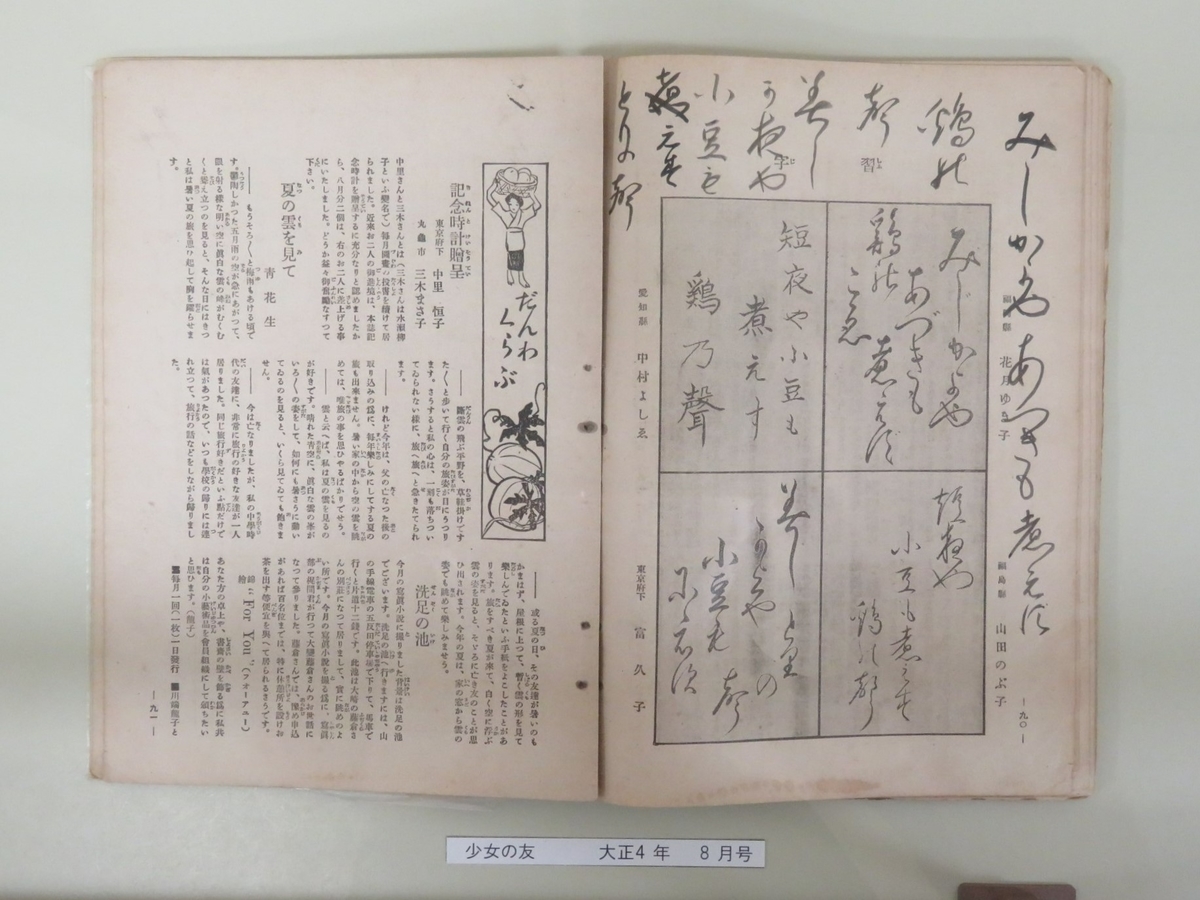 みしかよやあつきも煮え須
鶏能
声
習字
美し
可夜や
小豆も
煮え須
とりの声
花月ゆき子
福島縣 山田のぶ子
みじかよや
あづきも
煮えず
鶏能
こゑ
短夜や小豆も
煮えす
鶏乃聲
愛知縣 中村よしゑ
短夜や
小豆も煮えす
鶏能声
小豆も
東京府下 富久子
―九〇―
だんわくらぶ
記念時計贈呈
東京府下 中里恒子
丸龜市 三木まさ子
中里さんと三木さんとは(三木さんは水瀬柳
子といふ變名で)毎月
られました。近來お二人の御進境は、本誌記
念時計を贈呈するに充分なりと認めましたか
ら、八月分二個は、右のお二人に差上げる事
にいたしました。どうか益々御奮勵なすつて
下さい。
夏の雲を見て
青花生
―― もうそろ〳〵と梅雨もあける頃で
す。鬱陶しかつた五月雨の空が急にあがつて、
眼を射る樣な明い空に眞白な雲の峰がむくむ
くと聳え立つのを見ると、そんな日にはきつ
と私は暑い夏の旅を思ひ起して胸を躍らせま
す。
―― 斷雲の飛ぶ平野を、草鞋掛けです
た〳〵と歩いて行く自分の旅姿が目にうつり
ます。さうすると私の心は、一刻も落ちつい
てゐられない樣に、旅へ旅へと急きたてられ
ます。
―― けれど今年は、父の亡なつた後の
取り込みの爲に、毎年樂しみにしてする夏の
旅も出來ません。暑い家の中から空の雲を眺
めては、唯旅の事を思ひやるばかりでせう。
―― 雲と云へば、私は夏の雲を見るの
が好きです。晴れた青空に、眞白な雲の峯が
いろ〳〵の姿をして、如何にも暑さうに動い
てゐるのを見ると、いくら見てゐても飽きま
せん。
―― 今は亡なりましたが、私の中學時
代の友達に、非常に旅行の好きな友達が一人
居りました。同じ旅行好きだといふ點だけで
は氣があつたので、いつも學校の歸りには連
れ立つて、旅行の話などをしながら歸りまし
た。
―― 或る夏の日、その友達が暑いのも
かまはず、屋根に上つて、暫く雲の形を見て
樂しんでゐたといふ手紙をよこしたことがあ
ります。旅をすべき夏が來て、白く空に浮ぶ
雲の姿を見ると、そゞろに亡き友のことが思
ひ出されます。今年の夏は、家の窓から雲の
姿でも眺めて樂しみませう。
洗足の池
今月の寫眞小説に撮りました背景は洗足の池
でございます。洗足の池へ行きますには、山
の手線電車の五反田停車場で下りて、馬車で
行くと片道十二錢です。此池は大崎の藤倉さ
んの別莊になつて居りまして、實に眺めのよ
い所です。今月の寫眞小説を撮る爲に、寫眞
部の梶間君が行つて大變藤倉さんのお世話に
なつて參りました。藤倉さんでは、豫め申込
があれば百名位までは、特に休憩所を設けお
茶を出す等便宜を與へて居られるさうです。
繪 For You (フォーアユー)
あなた方の卓上や、書齋の壁を飾る爲に私共
は自分の小藝術品を會員組織にして頒ちたい
と思ひます。(龍子)
■毎月一回(一枚)一日發行 ■川端龍子と
―九一―
少女の友 大正4年 8月号